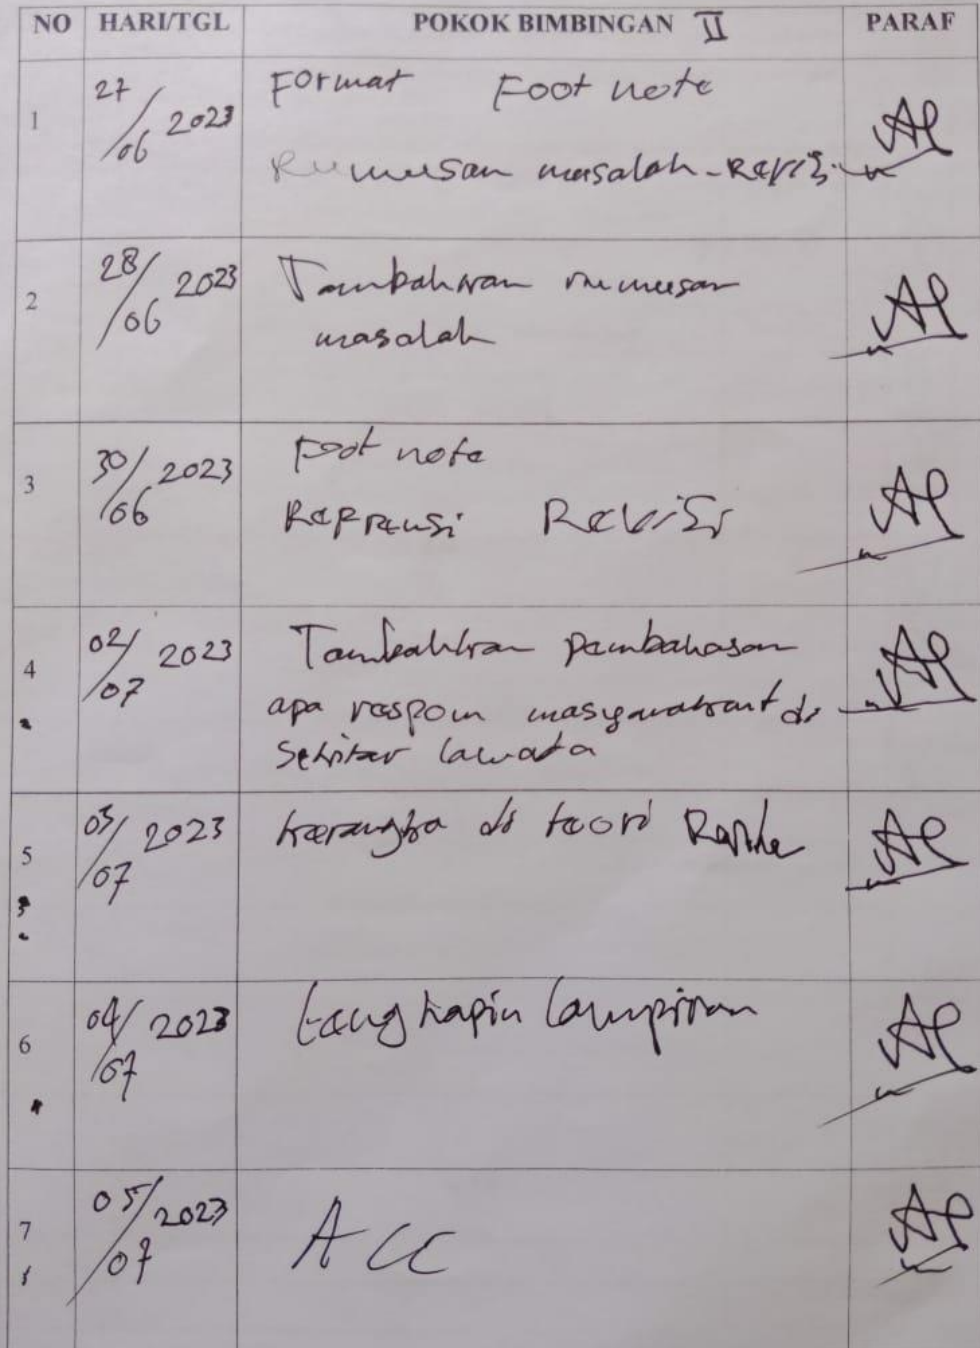 NO HARI/TGL POKOK BIMBINGAN II PARAF
1 27/06 2023 Format Foot note
Rumusan masalah - Revisi
2 28/06 2023 Tambahkan rumusan
masalah
3 30/06 2023 Foot note
Reprensi Revisi
4 02/07 2023 Tambahkan pembahasan
apa respom masyarakat di
sekitar lawata
5 03/07 2023 kerangka di teori
6 04/07 2023 Lengkapin lampiran
7 05/07 2023 ACC